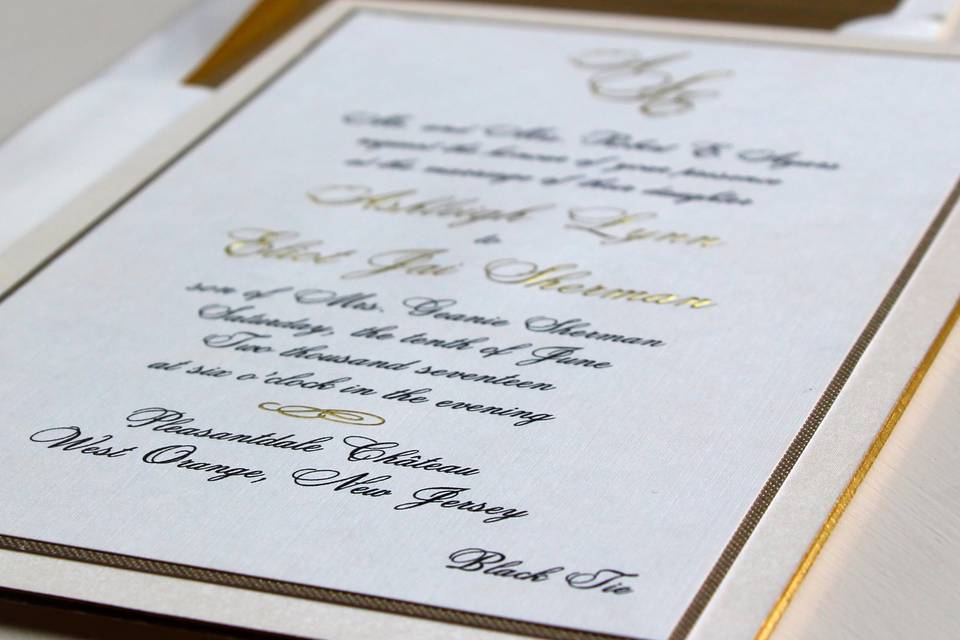 Mr. and Mrs. Robert E. Ayers
request the honour of your presence
at the marriage of their daughter
Ashleigh Lynn
to
Eliot Jai Sherman
son of Mrs. Geanie Sherman
Saturday, the tenth of June
Two thousand seventeen
at six o'clock in the evening
Pleasantdale Château
West Orange, New Jersey
Black Tie